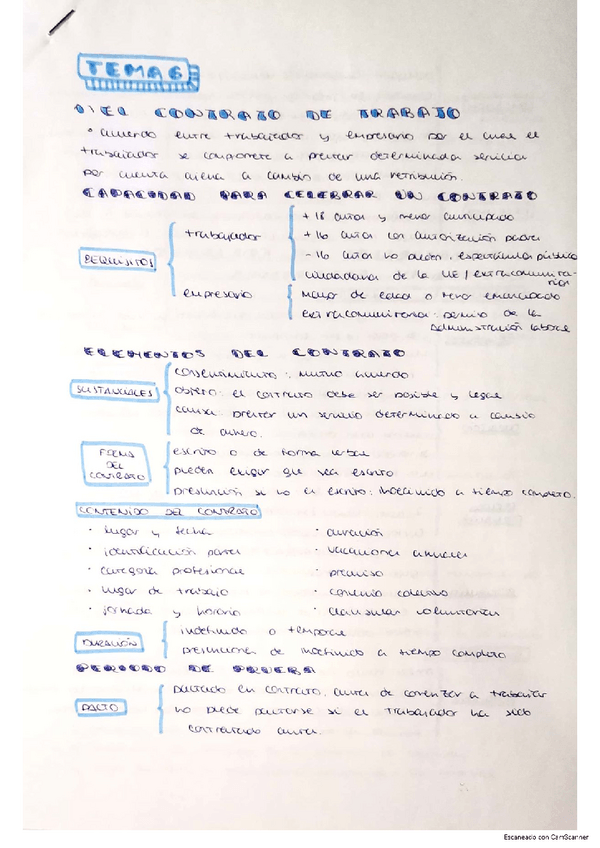 TEMA 6
EL CONTRATO DE TRABAJO
° acuerdo entre trabajador y empresario por el cual el
trabajador se compromete a prestar determinados servicios
por cuenta ajena a cambio de una retribución.
CAPACIDAD PARA CELEBRAR UN CONTRATO
REQUISITOS
trabajador
+ 18 años y menor
+ 16 años con autorización padres
- 16 años no pueden, espectáculos públicos
ciudadanos de la UE / extracomunitarios
empresario
mayor de edad o menor emancipado
extracomunitarios: permiso de la
administración laboral
ELEMENTOS DEL CONTRATO
SUSTANCIALES
consentimiento: mutuo acuerdo
objeto: el contrato debe ser posible y legal
causa: prestar un servicio determinado a cambio
de dinero.
FORMA
DEL
CONTRATO
escrito o de forma verbal
pueden exigir que sea escrito
presunción si no es escrito: indefinido a tiempo completo.
CONTENIDO DEL CONTRATO
· lugar y fecha
· duración
· identificación partes
· vacaciones anuales
· categoría profesional
· preaviso
· lugar de trabajo
· convenio colectivo
· jornada y horario
· cláusulas voluntarias
DURACIÓN
indefinido o temporal
presunciones de indefinido a tiempo completo
PERIODO DE PRUEBA
PACTO
pactado en contrato, antes de comenzar a trabajar
no puede pactarse si el trabajador ha sido
contratado antes.
Escaneado con CamScanner